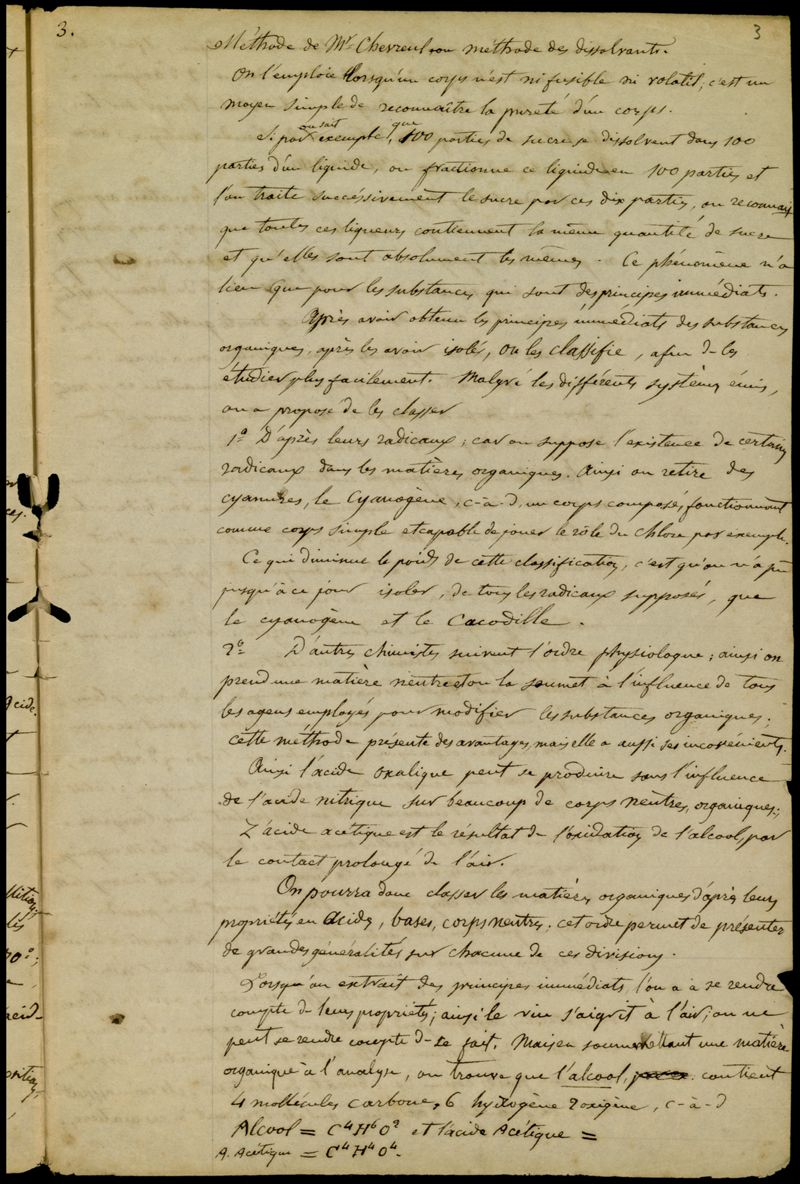 3.
3
Méthode de Mr Chevreul ou méthode des dissolvants.
On l'emploie lorsqu'un corps n'est ni fusible ni volatil, c'est un
moyen simple de reconnaître la pureté d'un corps.
on sait que
Si par exemple, 100 parties de sucre se dissolvent dans 100
parties d'un liquide, on fractionne ce liquide en 100 parties et
l'on traite succéssivement le sucre par ces dix parties, on reconnait
que toutes ces liqueurs contiennent la même quantité de sucre
et qu'elles sont absolument les mêmes. Ce phénomène n'a
lieu que pour les substances qui sont des principes immédiats.
Après avoir obtenu les principes immédiats des substances
organiques, après les avoir isolés, on les classifie, afin de les
étudier plus facilement. Malgré les différents systèmes émis,
on a proposé de les classer
1o D'après leurs radicaux; car on suppose l'existence de certains
radicaux dans les matières organiques. Ainsi on retire des
cyanures, le Cyanogène, c-à-d, un corps composé, fonctionnant
comme corps simple et capable de jouer le rôle du Chlore par exemple.
Ce qui diminue le poids de cette classification, c'est qu'on n'a pu
jusqu'à ce jour isoler, de tous les radicaux supposés, que
le cyanogène et le Cacodille.
2o D'autres chimistes suivent l'ordre physiologue; ainsi on
prend une matière neutre et on la soumet à l'influence de tous
les agens employés pour modifier les substances organiques;
cette méthode présente des avantages, mais elle a aussi ses inconvénients.
Ainsi l'acide oxalique peut se produire sous l'influence
de l'acide nitrique sur beaucoup de corps neutres, organiques;
L'acide acétique est le résultat de l'oxidation de l'alcool, par
le contact prolongé de l'air.
On pourra donc classer les matières organiques d'après leurs
propriétés en acides, bases, corps neutres; cet ordre permet de présenter
de grandes généralités sur chacune de ces divisions.
Lorsqu'on extrait des principes immédiats, l'on a à se rendre
compte de leurs propriétés; ainsi le vin s'aigrit à l'air; on ne
peut se rendre compte de ce fait. Mais en soumettant une matière
organique à l'analyse, on trouve que l'alcool, contient
4 mollécules carbone, 6 hydrogène 2 oxigène, c-à-d
Alcool = C4H6O2 et l'acide Acétique =
A. Acétique = C4H4O4.